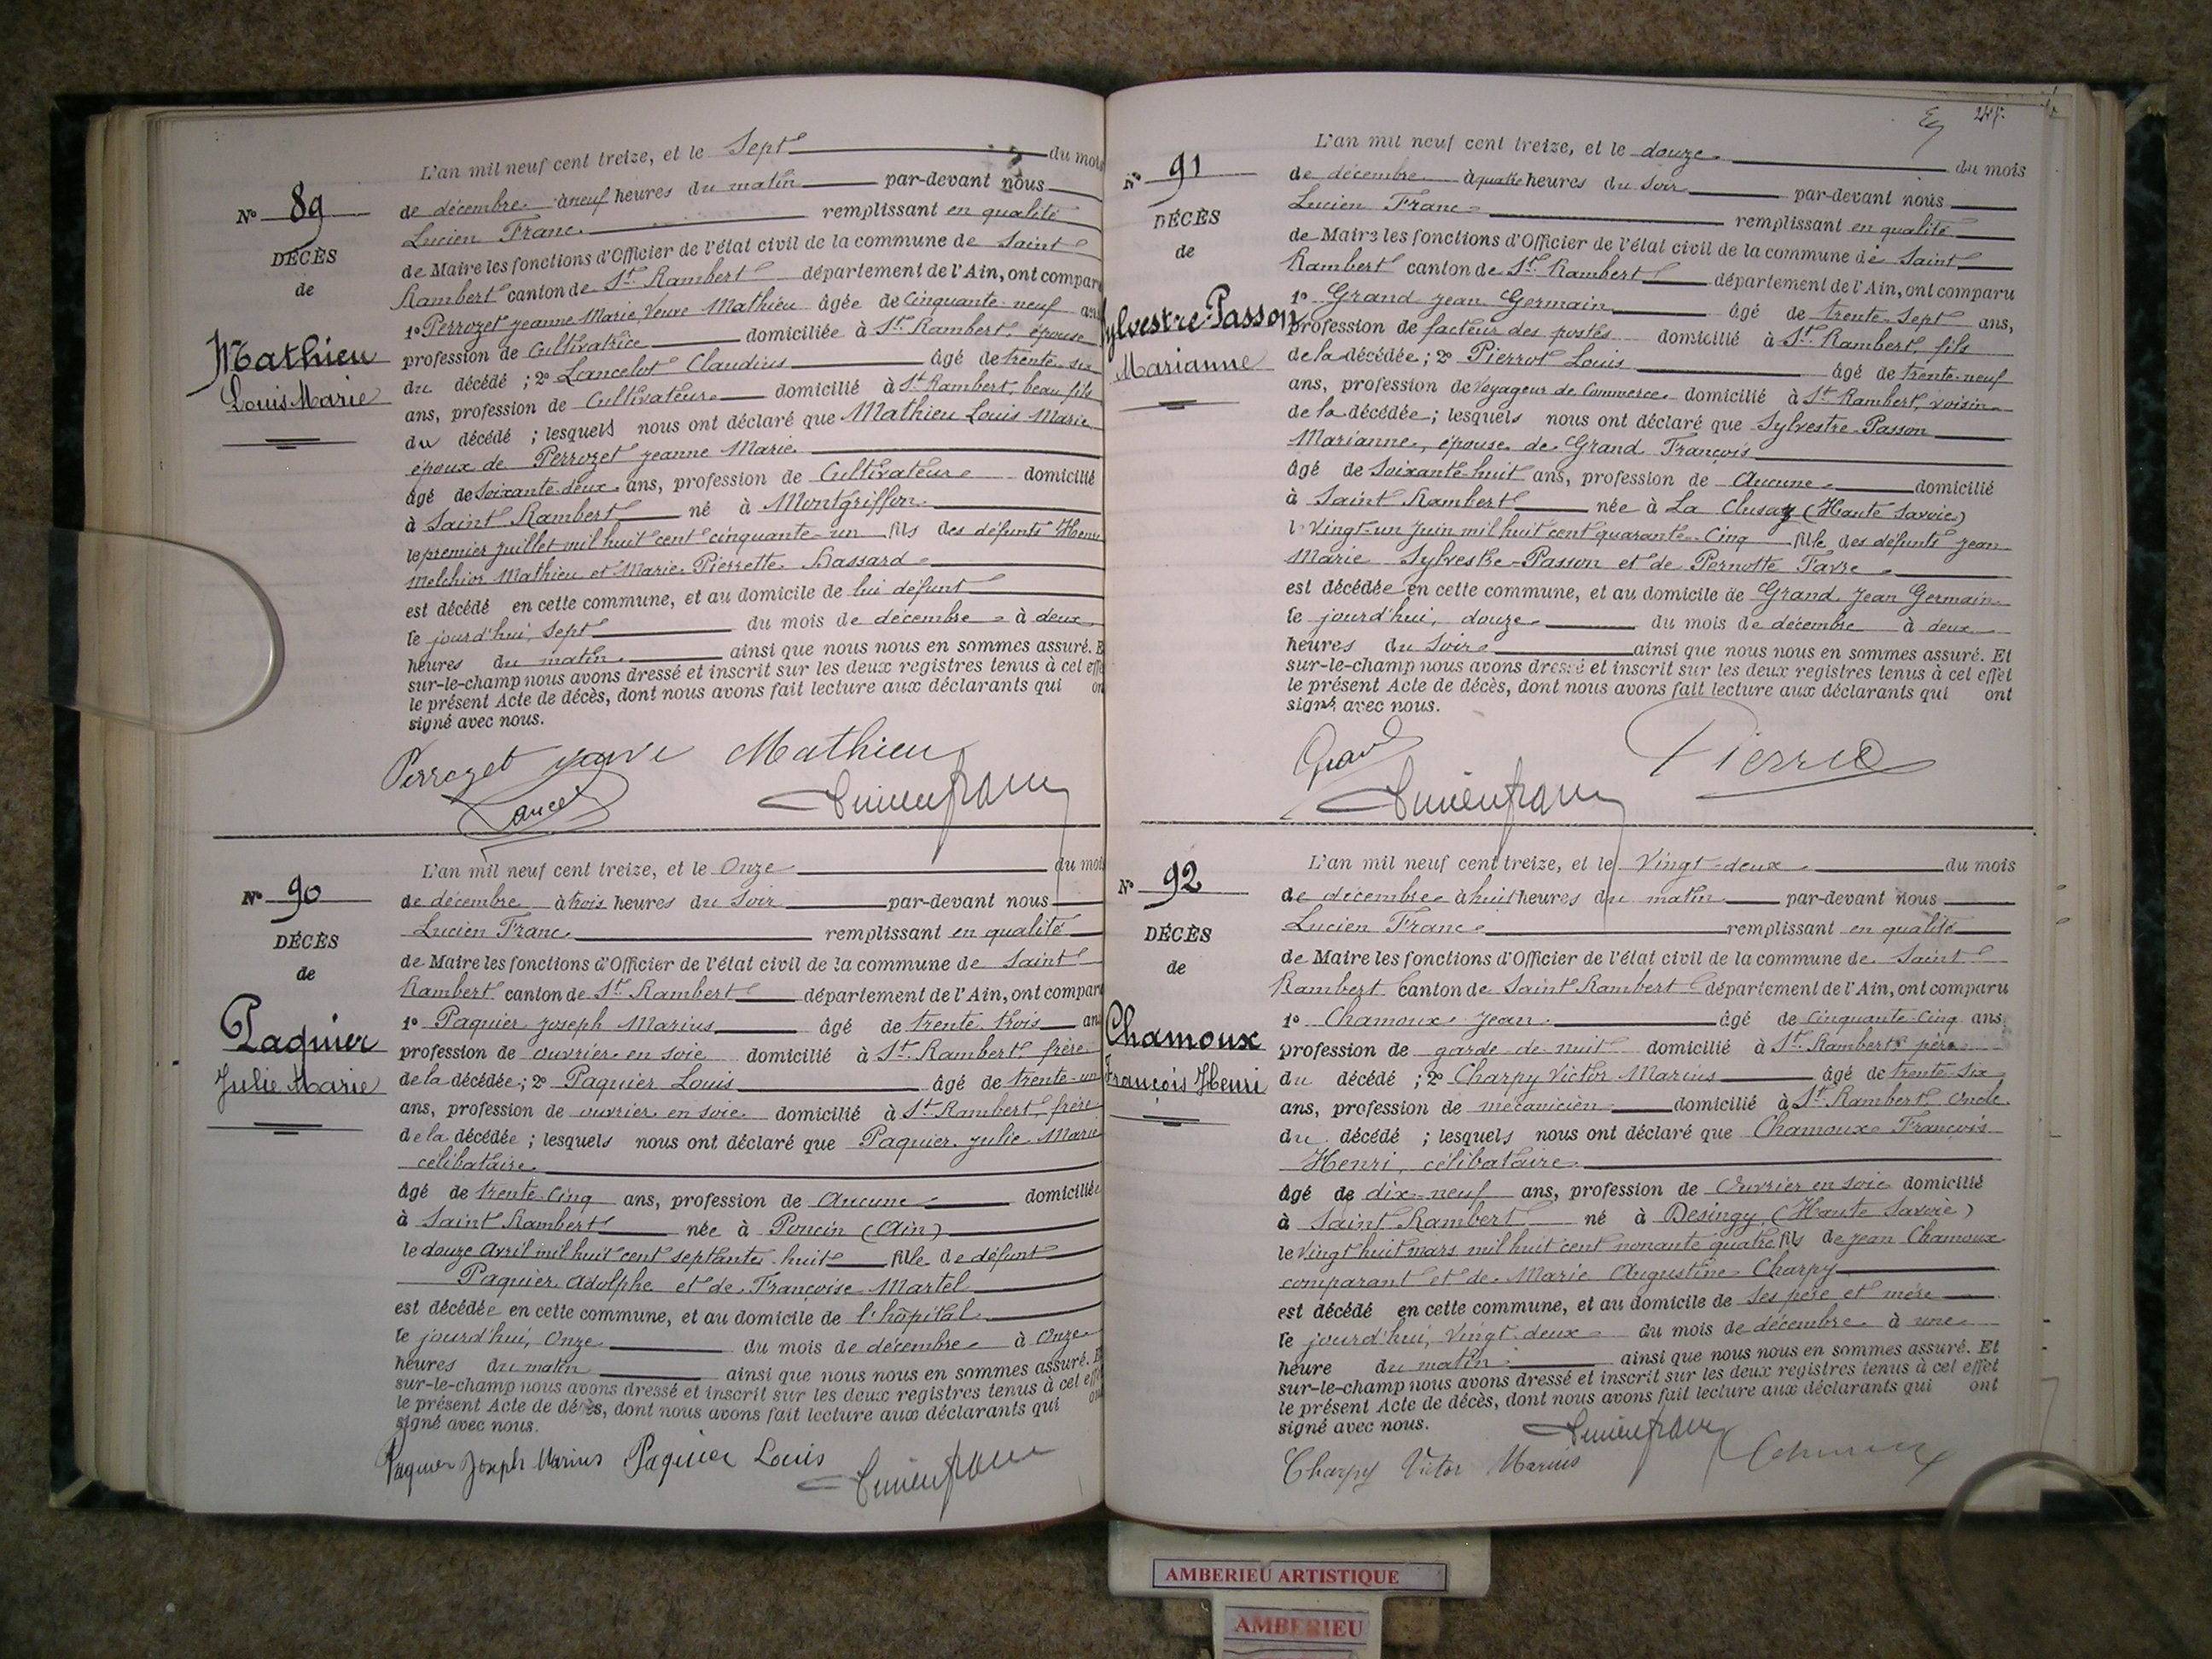 L'an mil neuf cent treize, et le Sept du mois
de décembre à neuf heures du matin par-devant nous
Lucien Franc remplissant en qualité
de Maire les fonctions d'Officier de l'état civil de la commune de Saint
Rambert canton de St. Rambert département de l'Ain, ont comparu
1º Perrozet Jeanne Marie, Veuve Mathieu âgée de Cinquante-neuf ans
profession de Cultivatrice domiciliée à St. Rambert, épouse
du décédé ; 2º Lancelot Claudius âgé de trente-six
ans, profession de Cultivateur domicilié à St Rambert, beau fils
du décédé ; lesquels nous ont déclaré que Mathieu Louis Marie
époux de Perrozet Jeanne Marie
âgé de Soixante-deux ans, profession de Cultivateur domicilié
à Saint Rambert né à Montgriffon
le premier Juillet mil huit cent cinquante-un fils des défunts Henri
Melchior Mathieu et Marie Pierrette Hassard
est décédé en cette commune, et au domicile de lui défunt
le jourd'hui, sept du mois de décembre à deux
heures du matin ainsi que nous nous en sommes assuré. E
sur-le-champ nous avons dressé et inscrit sur les deux registres tenus à cel effe
le présent Acte de décès, dont nous avons fait lecture aux déclarants qui on
signé avec nous.
Nº 89
DÉCÈS
de
Mathieu
Louis Marie
Perrozet veuve Mathieu
Lancel
Lucien franc
L'an mil neuf cent treize, et le Onze du mois
de décembre à trois heures du Soir par-devant nous
Lucien Franc remplissant en qualité
de Maire les fonctions d'Officier de l'état civil de la commune de Saint
Rambert canton de St. Rambert département de l'Ain, ont comparu
1º Paquier Joseph Marius âgé de trente trois ans
profession de ouvrier en soie domicilié à St. Rambert frère
de la décédée ; 2º Paquier Louis âgé de trente-un
ans, profession de ouvrier en soie domicilié à St. Rambert, frère
de la décédée ; lesquels nous ont déclaré que Paquier Julie Marie
célibataire
âgé de trente-cinq ans, profession de Aucune domiciliée
à Saint Rambert née à Poncin (Ain)
le douze Avril mil huit cent septante-huit fille de défunt
Paquier Adolphe et de Françoise Martel
est décédée en cette commune, et au domicile de l'hôpital
le jourd'hui, Onze du mois de décembre à Onze
heures du matin ainsi que nous nous en sommes assuré. E
sur-le-champ nous avons dressé et inscrit sur les deux registres tenus à cel effe
le présent Acte de décès, dont nous avons fait lecture aux déclarants qui on
signé avec nous.
Nº 90
DÉCÈS
de
Paquier
Julie Marie
Paquier Joseph Marius Paquier Louis
Lucien franc
L'an mil neuf cent treize, et le douze du mois
de décembre à quatre heures du soir par-devant nous
Lucien Franc remplissant en qualité
de Maire les fonctions d'Officier de l'état civil de la commune de Saint
Rambert canton de St. Rambert département de l'Ain, ont comparu
1º Grand Jean Germain âgé de trente-sept ans,
profession de facteur des postes domicilié à St. Rambert, fils
de la décédée ; 2º Pierrot Louis âgé de trente-neuf
ans, profession de Voyageur de Commerce domicilié à St Rambert, voisin
de la décédée ; lesquels nous ont déclaré que Sylvestre-Passon
Marianne, épouse de Grand François
âgé de Soixante-huit ans, profession de Aucune domicilié
à Saint Rambert née à La Clusaz (Haute Savoie)
le Vingt-un Juin mil huit cent quarante-cinq fille des défunts Jean
Marie Sylvestre-Passon et de Pernotte Favre
est décédée en cette commune, et au domicile de Grand Jean Germain
le jourd'hui, douze du mois de décembre à deux
heures du Soir ainsi que nous nous en sommes assuré. Et
sur-le-champ nous avons dressé et inscrit sur les deux registres tenus à cel effet
le présent Acte de décès, dont nous avons fait lecture aux déclarants qui ont
signé avec nous.
Nº 91
DÉCÈS
de
Sylvestre-Passon
Marianne
Grand
Pierrot
Lucien franc
L'an mil neuf cent treize, et le Vingt-deux du mois
de décembre à huit heures du matin par-devant nous
Lucien Franc remplissant en qualité
de Maire les fonctions d'Officier de l'état civil de la commune de Saint
Rambert canton de Saint Rambert département de l'Ain, ont comparu
1º Chamoux Jean âgé de Cinquante-Cinq ans
profession de garde de nuit domicilié à St. Rambert père
du décédé ; 2º Charpy Victor Marius âgé de trente-six
ans, profession de mécanicien domicilié à St. Rambert oncle
du décédé ; lesquels nous ont déclaré que Chamoux François
Henri, célibataire
âgé de dix-neuf ans, profession de Ouvrier en soie domicilié
à Saint Rambert né à Desingy (Haute Savoie)
le Vingt huit mars mil huit cent nonante quatre fils de Jean Chamoux
comparant et de Marie Augustine Charpy
est décédé en cette commune, et au domicile de ses père et mère
le jourd'hui, Vingt-deux du mois de décembre à une
heure du matin ainsi que nous nous en sommes assuré. Et
sur-le-champ nous avons dressé et inscrit sur les deux registres tenus à cel effet
le présent Acte de décès, dont nous avons fait lecture aux déclarants qui ont
signé avec nous.
Nº 92
DÉCÈS
de
Chamoux
François Henri
Lucien franc
Charpy Victor Marius
AMBERIEU ARTISTIQUE
AMBERIEU